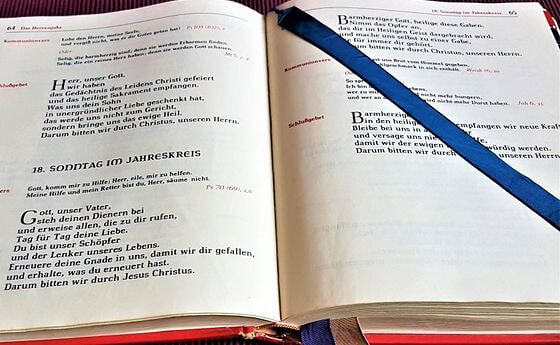 64 Das Herrenjahr
Kommunionvers
Lobe den Herrn, meine Seele,
und vergiß nicht, was er dir Gutes getan hat! Ps 103 (102), 2
Oder
Selig, die barmherzig sind; denn sie werden Erbarmen finden.
Selig, die ein reines Herz haben; denn sie werden Gott schauen.
Mt 5, 7-8
Schlußgebet
Herr, unser Gott,
wir haben
das Gedächtnis des Leidens Christi gefeiert
und das heilige Sakrament empfangen.
Was uns dein Sohn
in unergründlicher Liebe geschenkt hat,
das werde uns nicht zum Gericht,
sondern bringe uns das ewige Heil.
Darum bitten wir durch Christus, unseren Herrn.
18. SONNTAG IM JAHRESKREIS
Gott, komm mir zu Hilfe; Herr, eile, mir zu helfen.
Meine Hilfe und mein Retter bist du, Herr, säume nicht.
Ps 70 (69), 2.6
Gott, unser Vater,
steh deinen Dienern bei
und erweise allen, die zu dir rufen,
Tag für Tag deine Liebe.
Du bist unser Schöpfer
und der Lenker unseres Lebens.
Erneuere deine Gnade in uns, damit wir dir gefallen,
und erhalte, was du erneuert hast.
Darum bitten wir durch Jesus Christus.
18. Sonntag im Jahreskreis 65
Barmherziger Gott, heilige diese Gaben.
Nimm das Opfer an,
das dir im Heiligen Geist dargebracht wird,
und mache uns selbst zu einer Gabe,
die für immer dir gehört.
Darum bitten wir durch Christus, unseren Herrn.
Kommunionvers
uns Brot vom Himmel gegeben,
Wohlgeschmack in sich enthält. Weish 16, 20
So
Ich bin
wer zu mir nicht mehr hungern,
und wer an wird nicht mehr Durst haben. Joh 6, 35
Schlußgebet
Barmherziger
in den heiligen empfangen wir neue
Bleibe bei uns in
und versage uns nicht
damit wir der ewigen würdig werden.
Darum bitten wir durch unseren Herrn